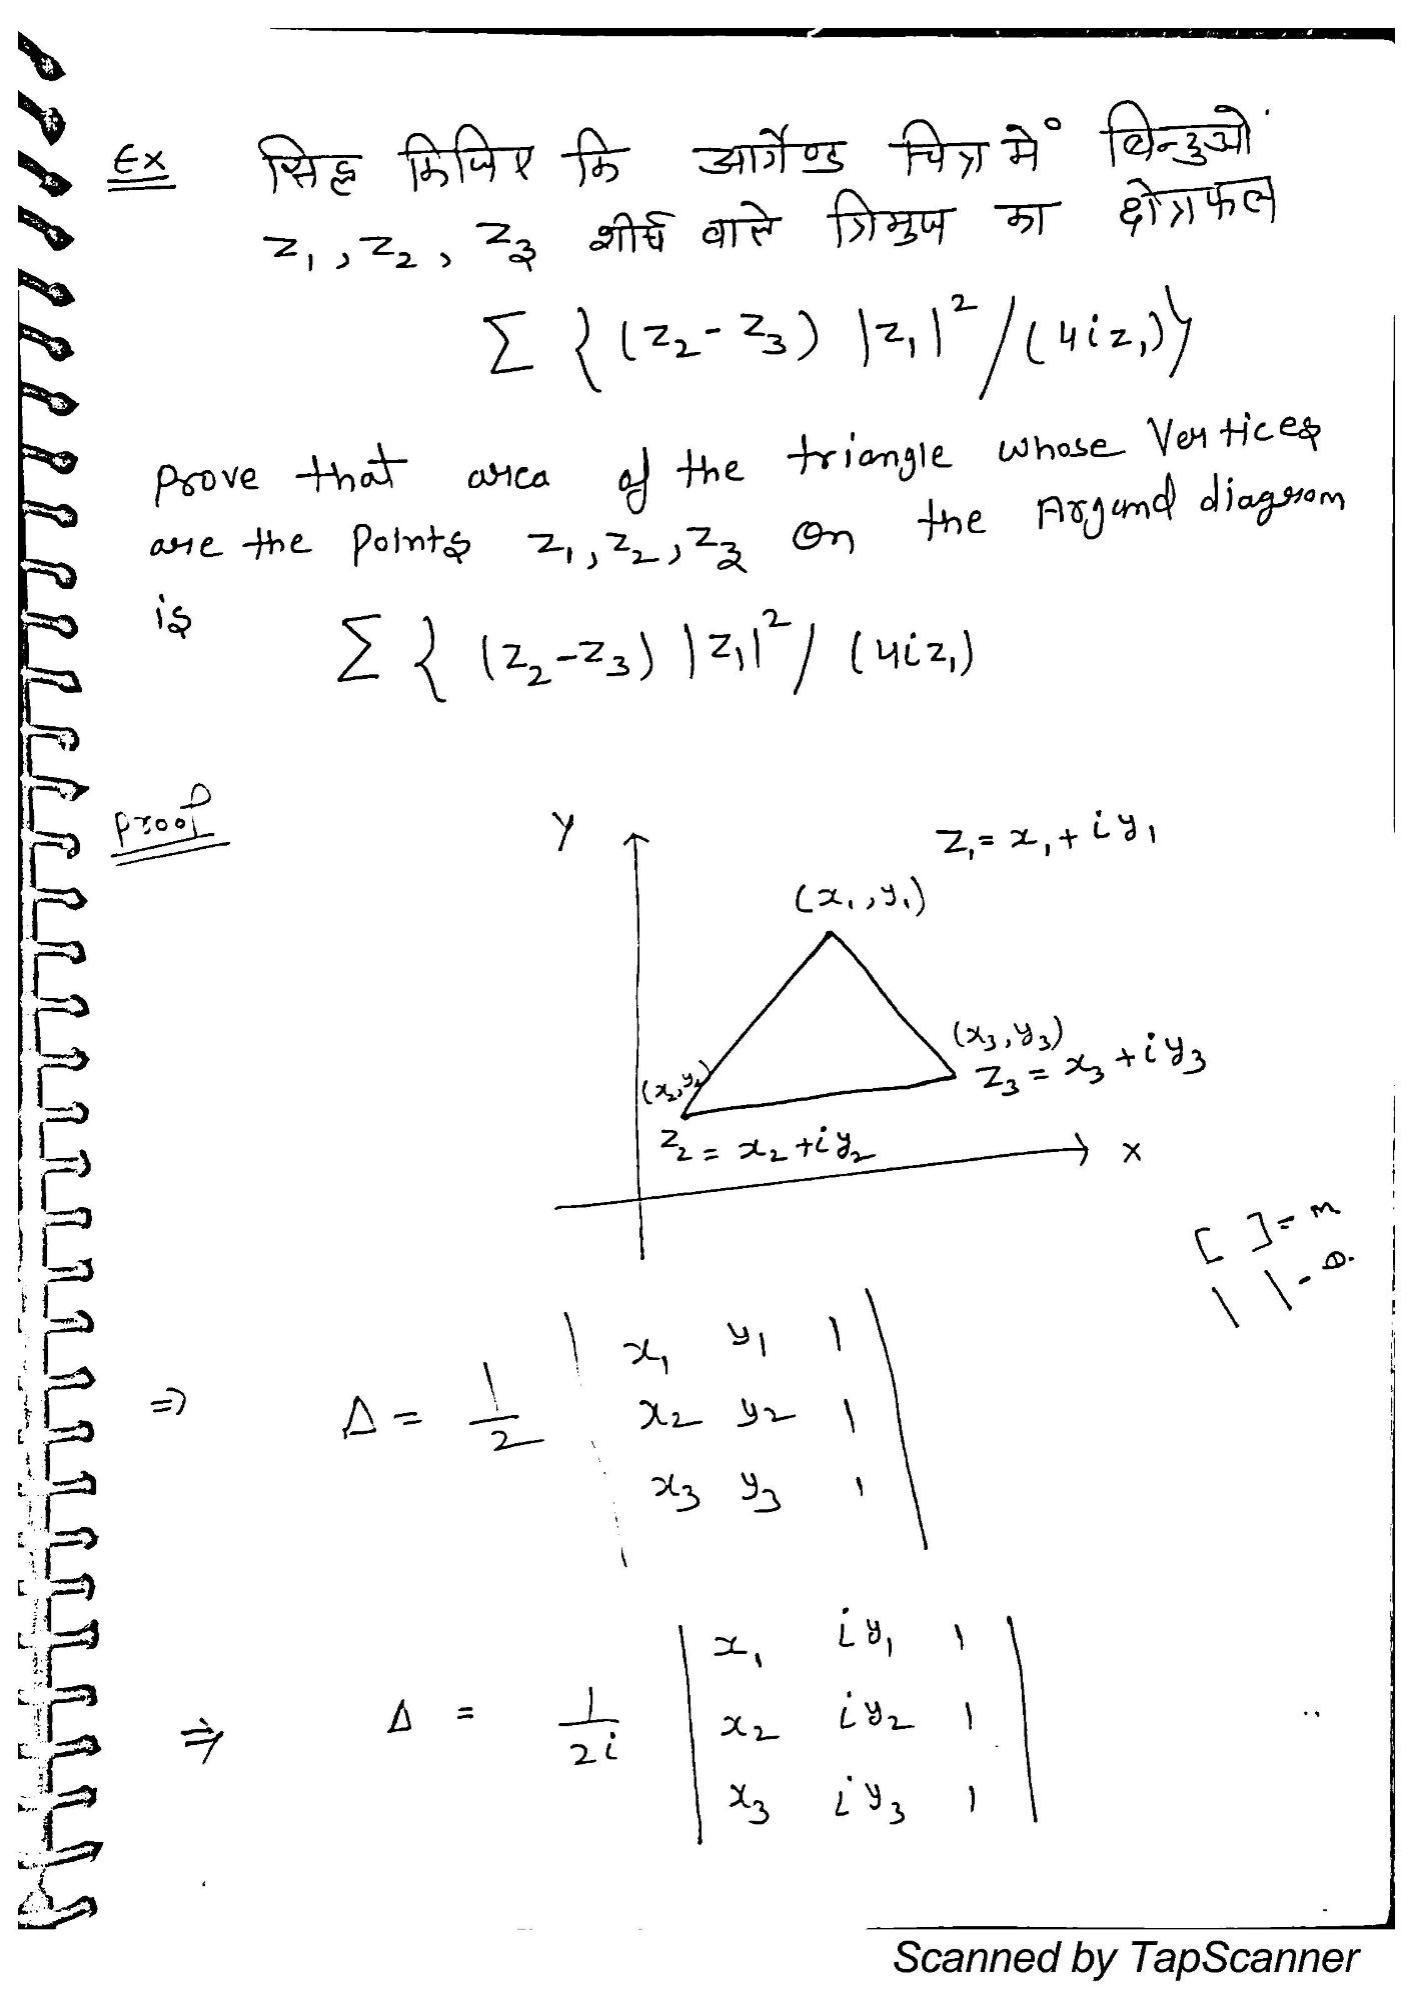 Ex सिद्ध किजिए कि आर्गेण्ड चित्र में बिन्दुओं
z₁, z₂, z₃ शीर्ष वाले त्रिभुज का क्षेत्रफल
Σ { (z₂ - z₃) |z₁|² / (4iz₁) }
Prove that area of the triangle whose Vertices
are the Points z₁, z₂, z₃ on the Argand diagram
is Σ { (z₂ - z₃) |z₁|² / (4iz₁)
Proof
Y
z₁ = x₁ + iy₁
(x₁, y₁)
(x₃, y₃)
z₃ = x₃ + iy₃
(x₂, y₂)
z₂ = x₂ + iy₂
X
[ ] = m
| | - D.
⇒ Δ = 1/2 | x₁ y₁ 1 |
| x₂ y₂ 1 |
| x₃ y₃ 1 |
⇒ Δ = 1/2i | x₁ iy₁ 1 |
| x₂ iy₂ 1 |
| x₃ iy₃ 1 |
Scanned by TapScanner